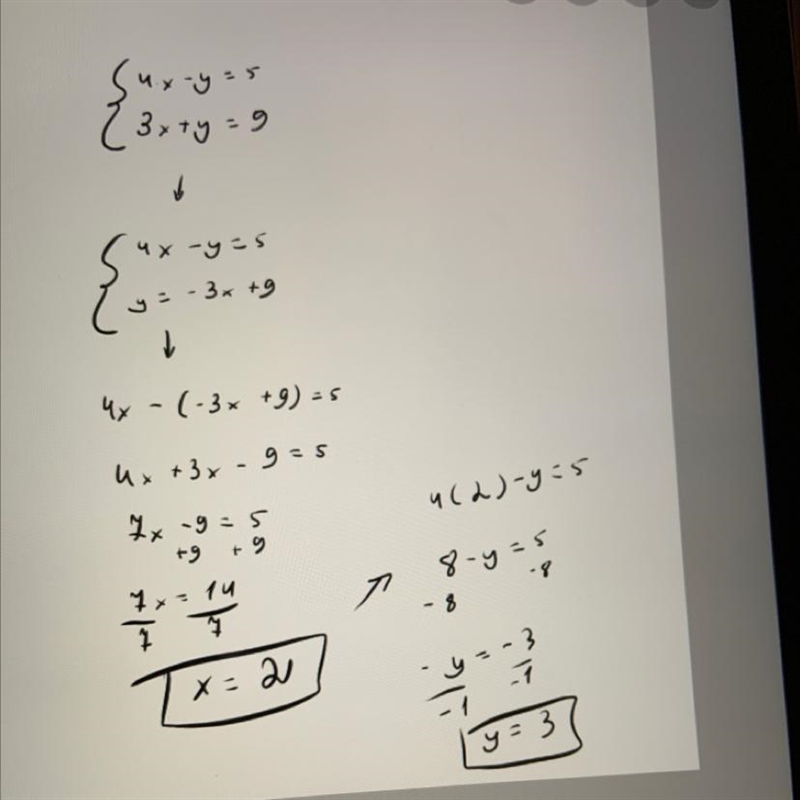 4x - y = 5
3x + y = 9
↓
4x - y = 5
y = -3x + 9
↓
4x - (-3x + 9) = 5
4x + 3x - 9 = 5
7x - 9 = 5
+9 +9
7x = 14
7 7
x = 2
↗
4(2) - y = 5
8 - y = 5
-8 -8
-y = -3
-1 -1
y = 3